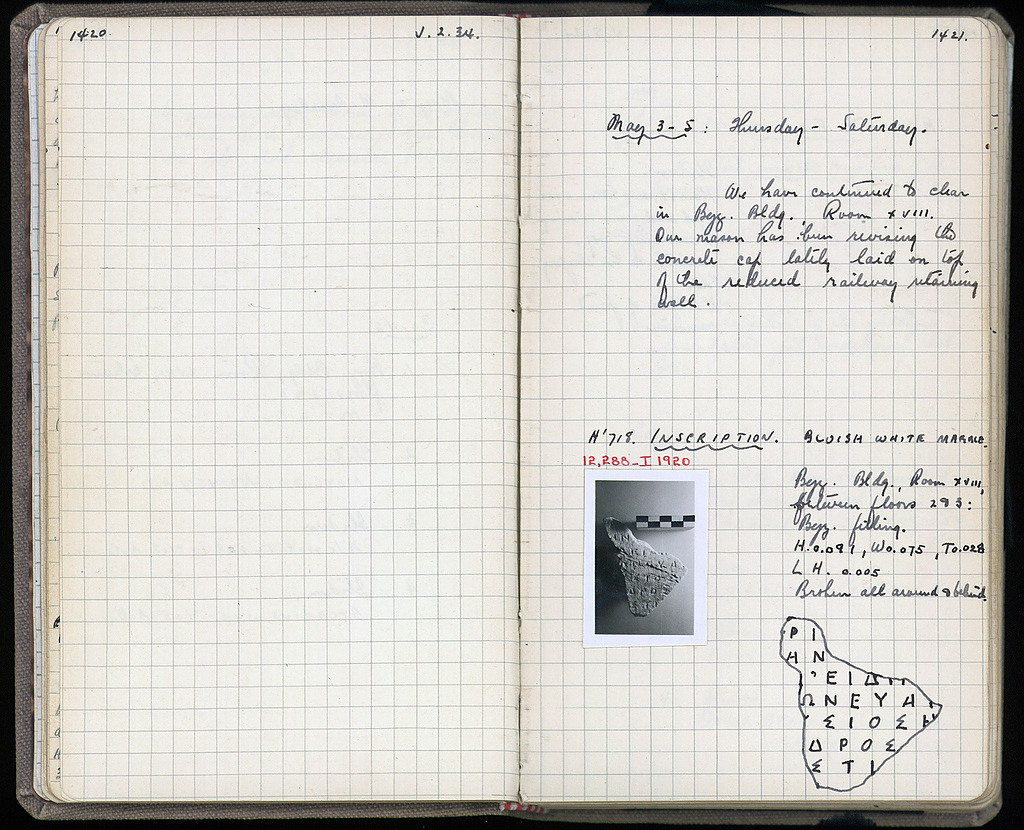 1420
V.2.34.
1421.
May 3-5: Thursday - Saturday.
We have continued to clear
in Byz. Bldg., Room XVIII.
Our mason has been revising the
concrete cap lately laid on top
of the reduced railway retaining
wall.
H'718. INSCRIPTION. BLUISH WHITE MARBLE.
12,288-I 1920
Byz. Bldg., Room XVIII,
between floors 2 & 3:
Byz. filling.
H. 0.097, W 0.075, T 0.028
L H. 0.005
Broken all around & behind.
Ρ Ι
Η Ν
Ε Ι Δ
Ω Ν Ε Υ Α
Σ Ι Ο Σ
Δ Ρ Ο Σ
Σ Τ Ι